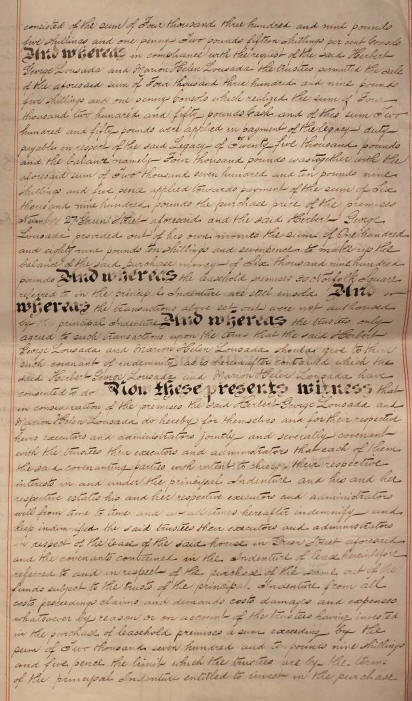 consisted of the sum of Four thousand three hundred and nine pounds
five shillings and one penny Two pounds fifteen shillings per cent Consols
And whereas in compliance with the request of the said Herbert
George Lousada and Marion Helen Lousada the trustees permitted the sale
of the aforesaid sum of Four thousand three hundred and nine pounds
five shillings and one penny Consols which realized the sum of Four
thousand two hundred and fifty pounds cash and of this sum Two
hundred and fifty pounds were applied in payment of the legacy duty
payable in respect of the said Legacy of Twenty five thousand pounds
and the balance namely Four thousand pounds was together with the
aforesaid sum of Two thousand seven hundred and ten pounds nine
shillings and five pence applied towards payment of the sum of Six
thousand nine hundred pounds the purchase price of the premises
at number 27 Street aforesaid and the said Herbert George
Lousada provided out of his own monies the sum of One hundred
and eighty nine pounds ten shillings and sevenpence to make up the
balance of the said purchase money of Six thousand nine hundred
pounds And whereas the leasehold premises 30 Norfolk Square
referred to in the principal Indenture are still unsold And
whereas the transactions above set out were not authorised
by the principal Indenture And whereas the trustees only
agreed to such transactions upon the terms that the said Herbert
George Lousada and Marion Helen Lousada should give to them
such covenant of indemnity as is hereinafter contained which the
said Herbert George Lousada and Marion Helen Lousada have
consented to do Now these presents witness that
in consideration of the premises the said Herbert George Lousada and
Marion Helen Lousada do hereby for themselves and for their respective
heirs executors and administrators jointly and severally covenant
with the trustees their executors and administrators that each of them
the said covenanting parties with intent to charge their respective
interests in and under the principal Indenture and his and her
respective estates his and her respective executors and administrators
will from time to time and at all times hereafter indemnify and
keep indemnified the said trustees their executors and administrators
in respect of the lease of the said house in Street aforesaid
and the covenants contained in the Indenture of lease hereinbefore
referred to and in respect of the purchase of the same out of the
funds subject to the trusts of the principal Indenture from all
costs proceedings claims and demands costs damages and expenses
whatsoever by reason or on account of the trustees having invested
in the purchase of leasehold premises a sum exceeding by the
sum of Two thousand seven hundred and ten pounds nine shillings
and five pence the limit which the trustees are by the terms
of the principal Indenture entitled to invest in the purchase